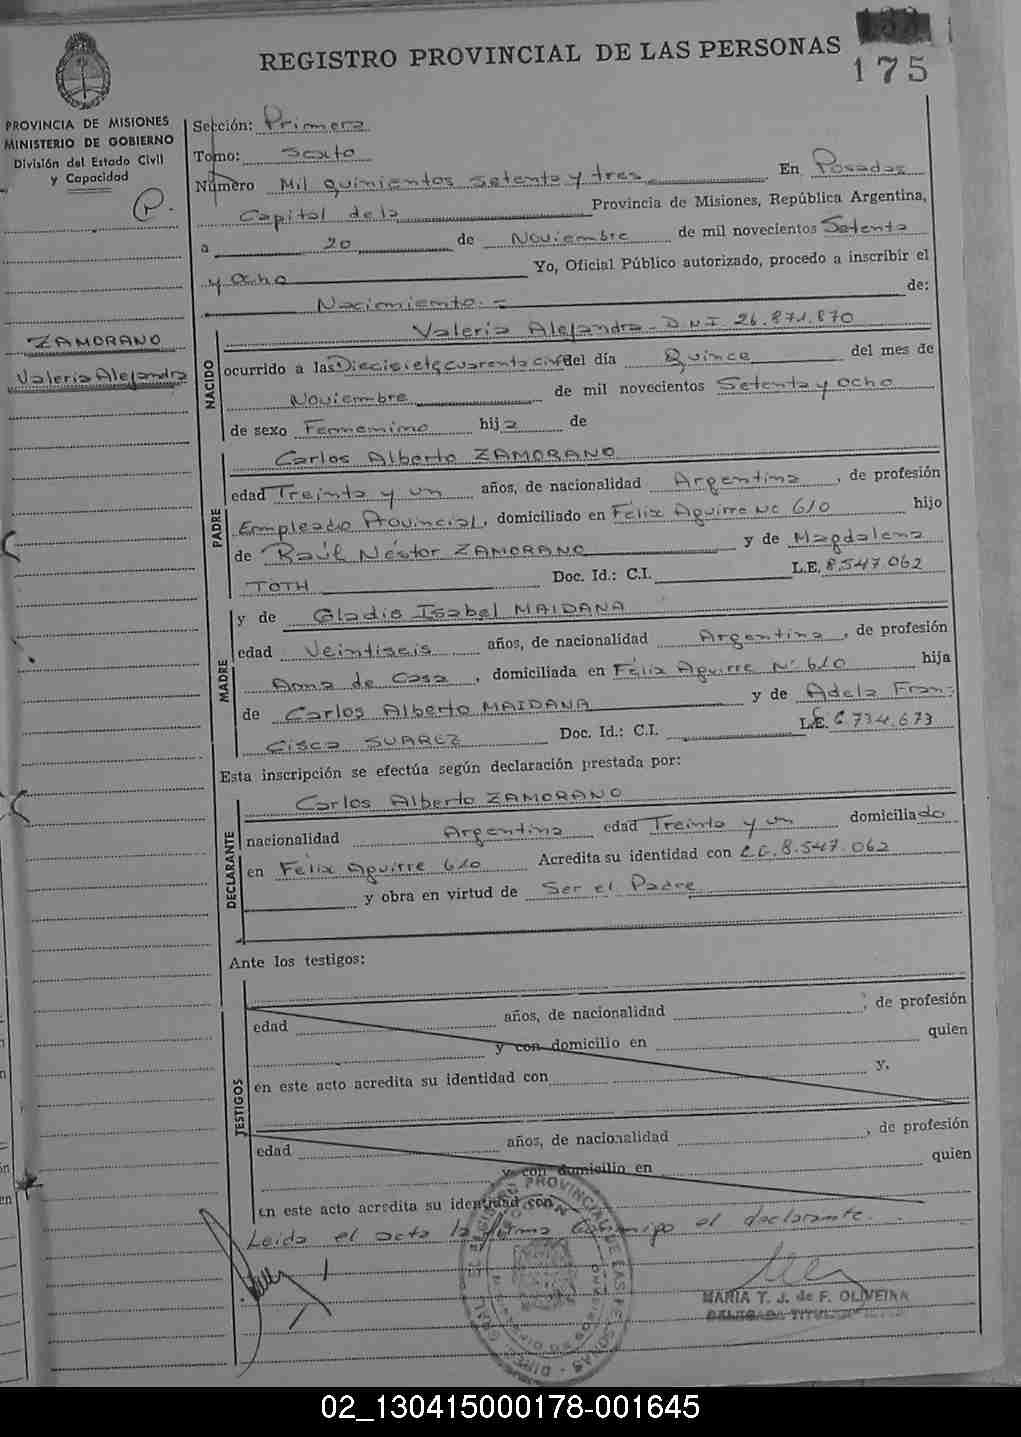 REGISTRO PROVINCIAL DE LAS PERSONAS
175
PROVINCIA DE MISIONES
MINISTERIO DE GOBIERNO
División del Estado Civil
y Capacidad
P.
ZAMORANO
Valeria Alejandra
Sección: Primera
Tomo: Sexto
Número Mil quinientos setenta y tres En Posadas
Capital de la Provincia de Misiones, República Argentina,
a 20 de Noviembre de mil novecientos Setenta
y Ocho Yo, Oficial Público autorizado, procedo a inscribir el
Nacimiento.- de:
NACIDO
Valeria Alejandra - D.N.I. 26.871.870
ocurrido a las Diecisiete cuarenta del día Quince del mes de
Noviembre de mil novecientos Setenta y Ocho
de sexo Femenino hija de
PADRE
Carlos Alberto ZAMORANO
edad Treinta y un años, de nacionalidad Argentina, de profesión
Empleado Provincial, domiciliado en Félix Aguirre Nº 610 hijo
de Raúl Néstor ZAMORANO y de Magdalena
TOTH Doc. Id.: C.I. L.E. 8.547.062
MADRE
y de Gladis Isabel MAIDANA
edad Veintiseis años, de nacionalidad Argentina, de profesión
Ama de Casa, domiciliada en Félix Aguirre Nº 610 hija
de Carlos Alberto MAIDANA y de Adela Fran-
cisca SUAREZ Doc. Id.: C.I. L.C. 6.734.673
Esta inscripción se efectúa según declaración prestada por:
DECLARANTE
Carlos Alberto ZAMORANO
nacionalidad Argentina edad Treinta y un domiciliado
en Félix Aguirre 610 Acredita su identidad con L.E. 8.547.062
y obra en virtud de Ser el Padre
Ante los testigos:
TESTIGOS
edad años, de nacionalidad, de profesión
y con domicilio en quien
en este acto acredita su identidad con y,
edad años, de nacionalidad, de profesión
y con domicilio en quien
en este acto acredita su identidad con
Leida el acta la firma conmigo el declarante.
MARIA T. J. de F. OLIVEIRA
DELEGADA TITULAR
02_130415000178-001645